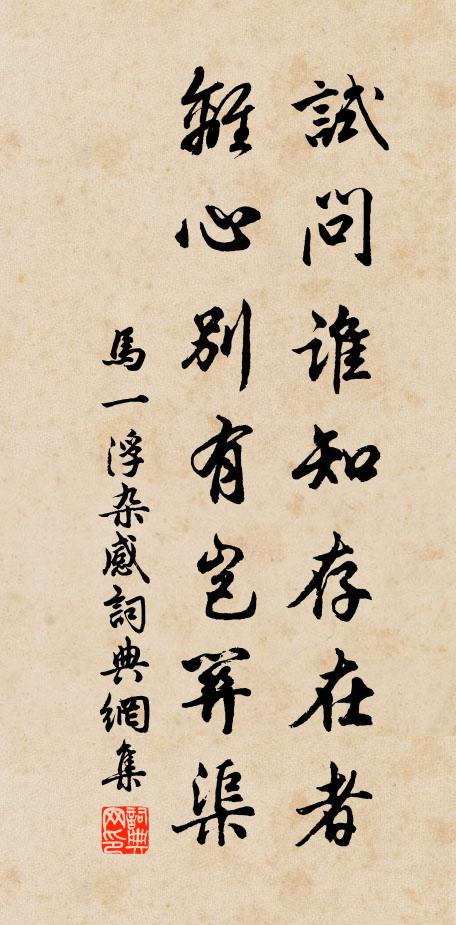 試問誰知存在者
離心別有豈渠
馬一浮杂感詞典網集
詞典
网印